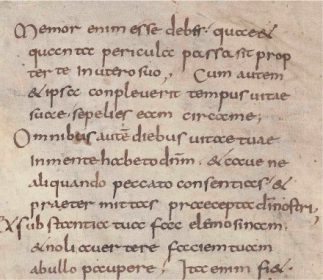 Memor enim esse debes quae &
quanta pericula passa sit prop
ter te in utero suo, Cum autem
& ipsa conpleverit tempus vitae
suae. sepelies eam circa me;
Omnibus autē diebus vitae tuae
in mente habeto dn̄m. & cave ne
aliquando peccato consentias &
praetermittas praecepta di nostri,
Ex substantia tua fac elemosinam.
& noli avertere faciem tuam
ab ullo paupere; Ita enim fi&